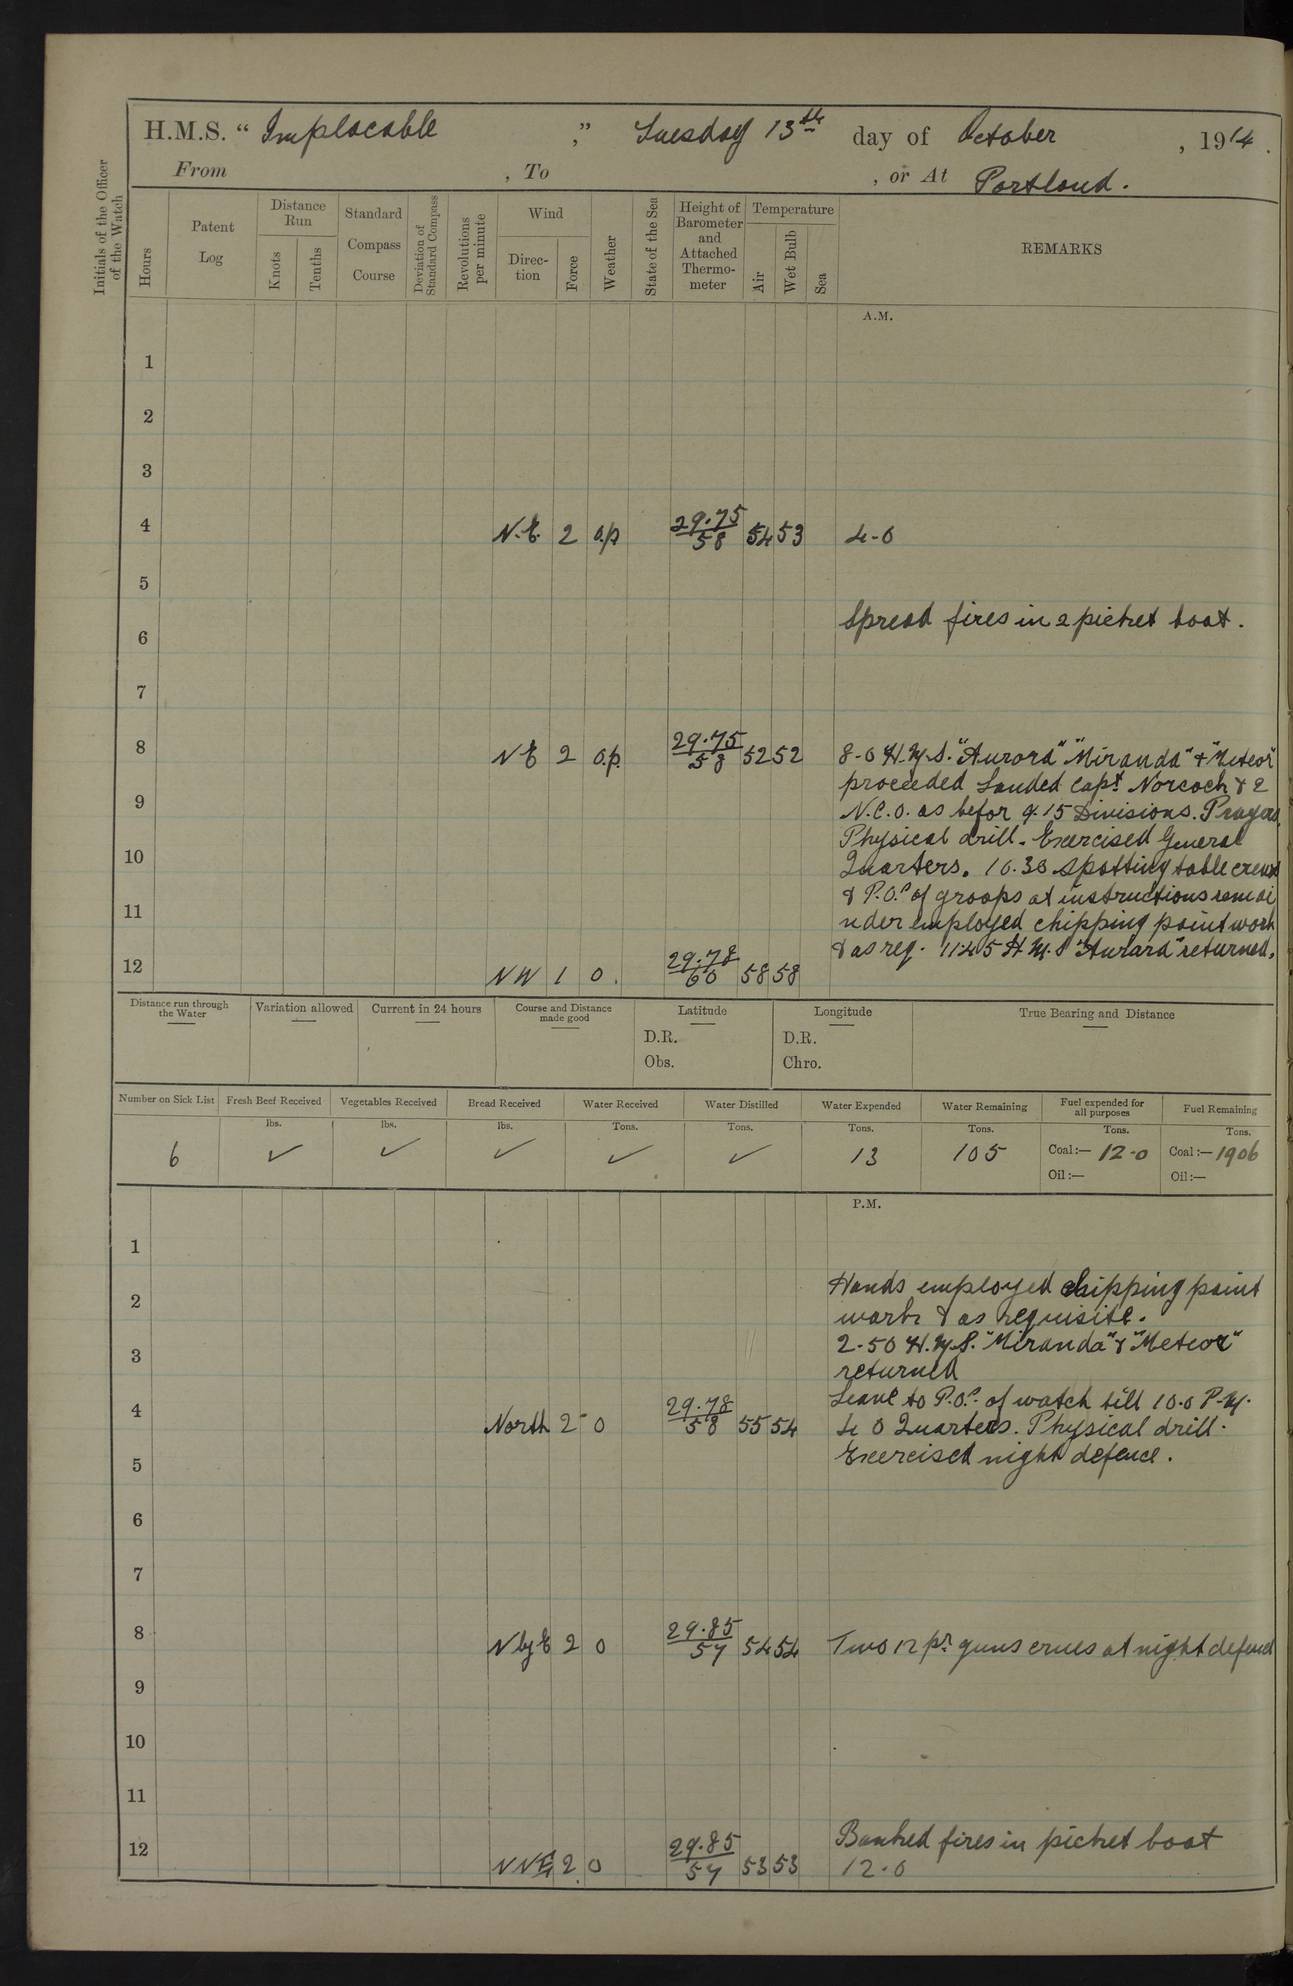 H.M.S. “ Implacable ,” Tuesday 13th day of October , 1914 .
From , To , or At Portland.
Initials of the Officer of the Watch
Hours
Patent Log
Distance Run
Knots
Tenths
Standard Compass Course
Deviation of Standard Compass
Revolutions per minute
Wind
Direc-tion
Force
Weather
State of the Sea
Height of Barometer and Attached Thermo-meter
Temperature
Air
Wet Bulb
Sea
REMARKS
A.M.
1
2
3
4 N.E. 2 o.p 29.75/58 54 53 4-0
5
Spread fires in 2 picket boat.
6
7
8 NE 2 o.p. 29.75/58 52 52 8-0 H.M.S. "Aurora" "Miranda" & "Meteor"
proceeded Landed Capt Norcoch & 2
9 N.C.O. as befor 9.15 Divisions. Prayers.
Physical drill. Exercised General
10 Quarters. 10.30 Spotting table crews
& P.O.s of groops at instructions remai
11 nder employed chipping paint work
& as req. 11.45 H.M.S "Aurara" returned.
12 NW 1 0. 29.78/60 58 58
Distance run through the Water
Variation allowed
Current in 24 hours
Course and Distance made good
Latitude
D.R.
Obs.
Longitude
D.R.
Chro.
True Bearing and Distance
Number on Sick List
Fresh Beef Received
Vegetables Received
Bread Received
Water Received
Water Distilled
Water Expended
Water Remaining
Fuel expended for all purposes
Fuel Remaining
lbs. lbs. lbs. Tons. Tons. Tons. Tons. Tons. Tons.
6 ✓ ✓ ✓ ✓ ✓ 13 105 Coal:— 12-0 Coal:— 1906
Oil:— Oil:—
P.M.
1
Hands employed chipping paint
2 work & as requisite.
2-50 H.M.S. "Miranda" & "Meteor"
3 returned
Leave to P.O.s of watch till 10.0 P.M.
4 North 2 0 29.78/58 55 54 4 0 Quarters. Physical drill.
Exercised night defence.
5
6
7
8 N by E 2 0 29.85/57 54 54 Two 12 pr guns crues at night defence
9
10
11
Banked fires in picket boat
12 NNE 2 0 29.85/57 53 53 12.0